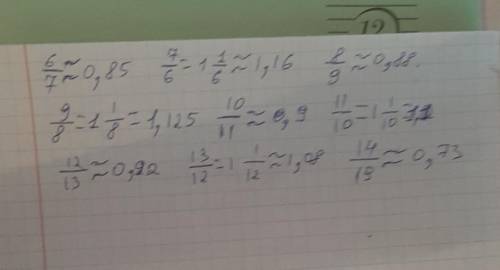 12
6/7 ≈ 0,85 7/6 = 1 1/6 ≈ 1,16 8/9 ≈ 0,88.
9/8 = 1 1/8 = 1,125 10/11 ≈ 0,9 11/10 = 1 1/10 = 1,1
12/13 ≈ 0,92 13/12 = 1 1/12 ≈ 1,08 14/19 ≈ 0,73